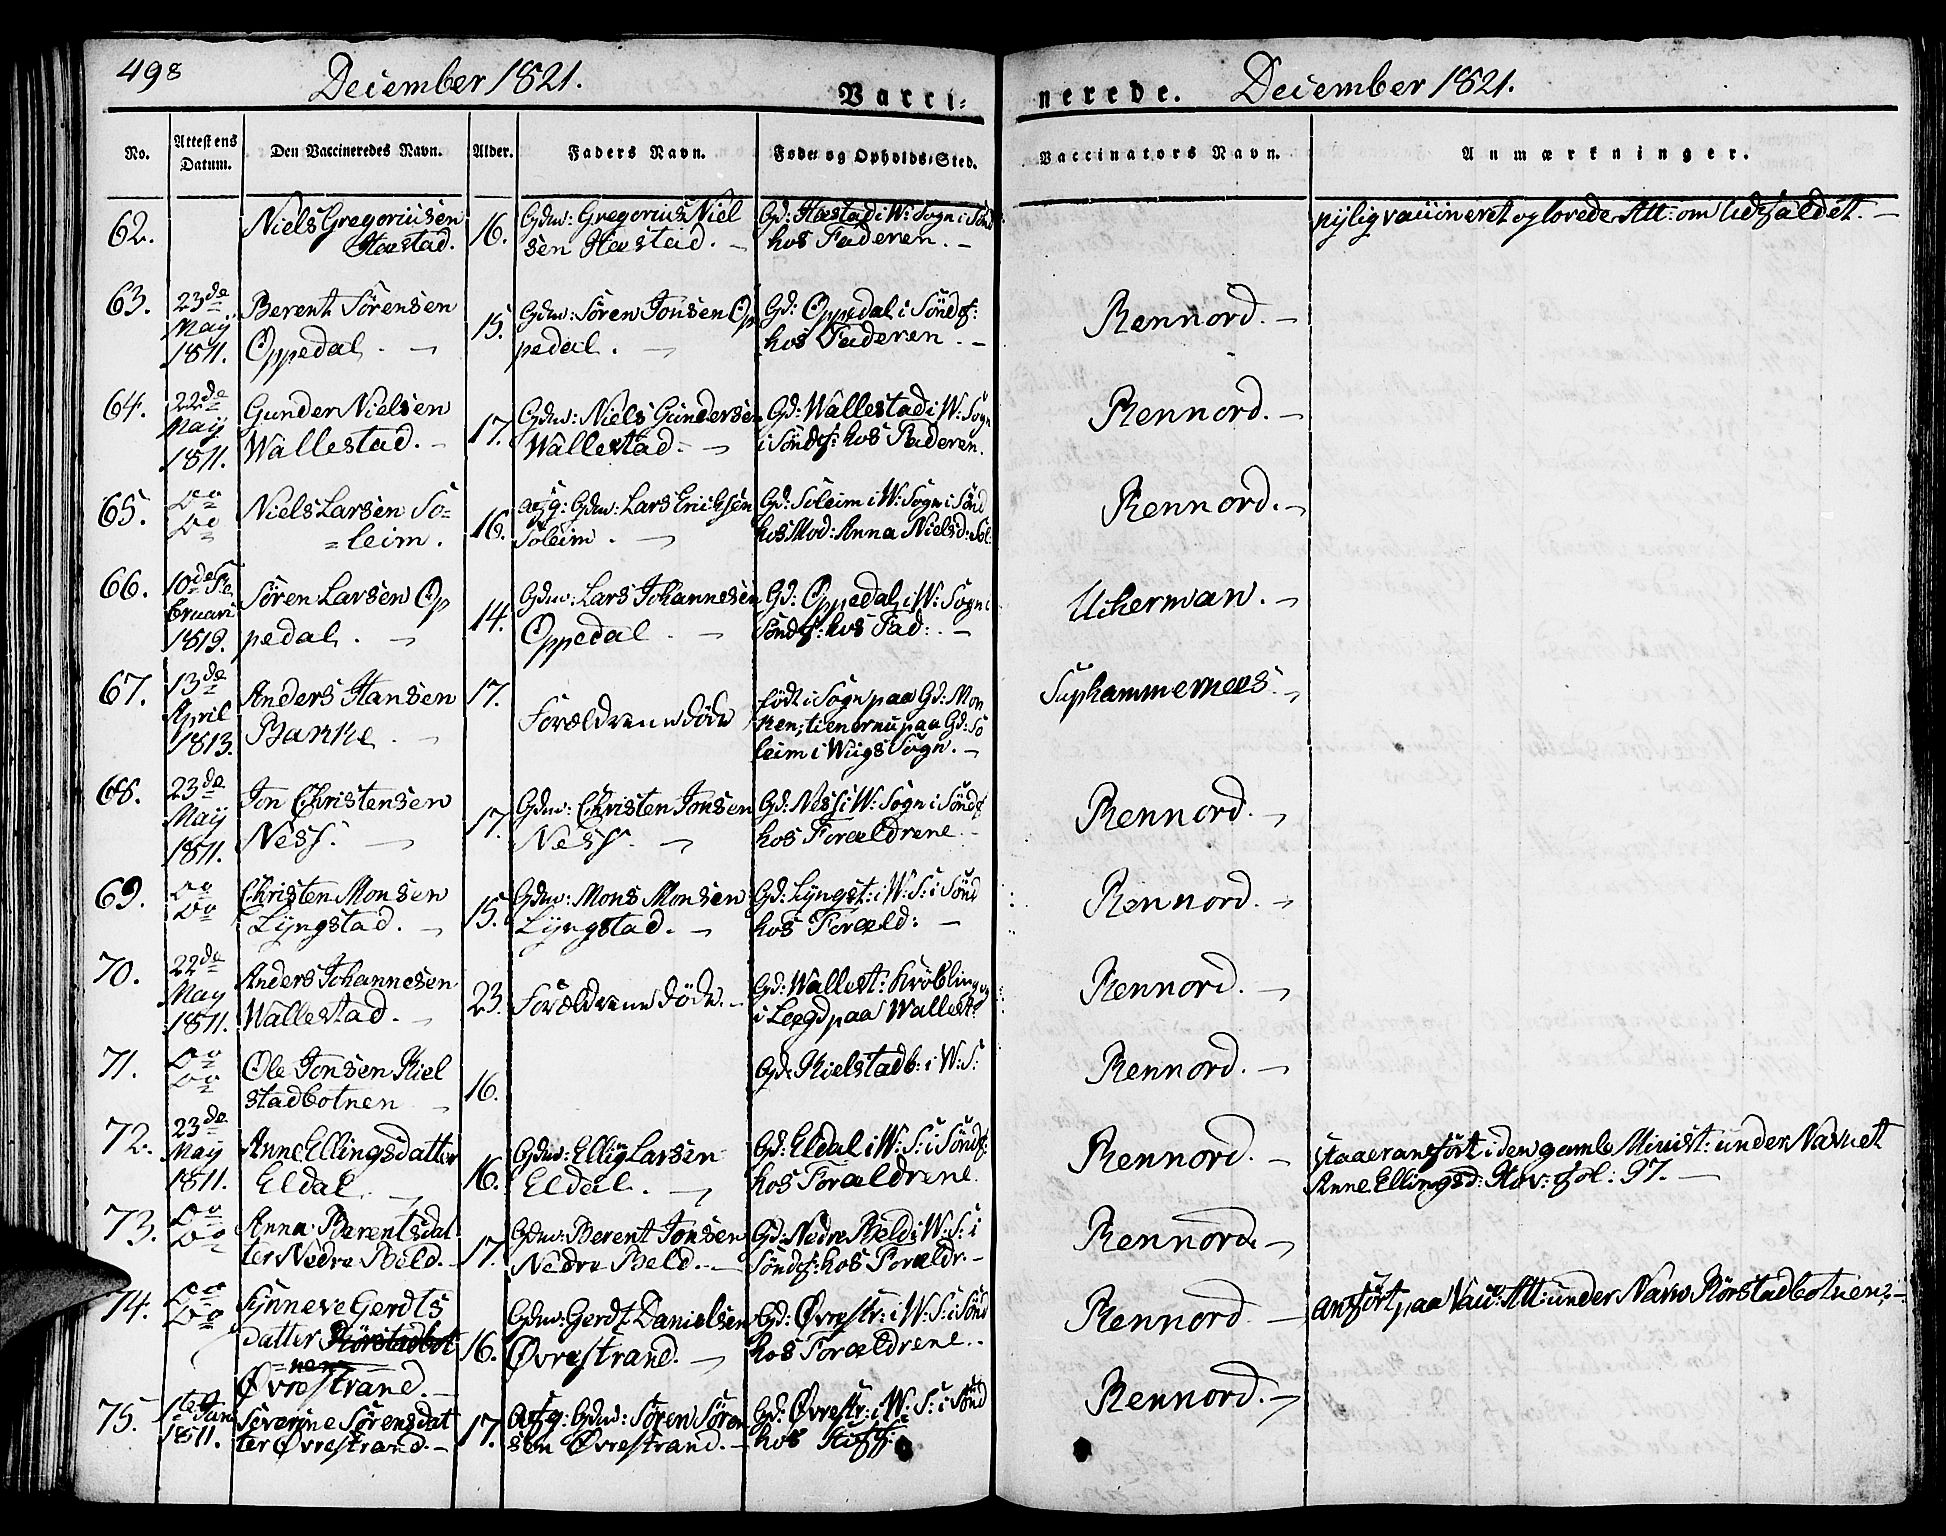 498
December 1821.
Vacci-
nerede.
December 1821.
No.
Attestens Datum.
Den Vaccineredes Navn.
Alder.
Faders Navn.
Føde og Opholds-Sted.
Vaccinators Navn.
Anmærkninger.
62.
Niels Gregoriusen
Hæstad.
16.
Gdm: Gregorius Niel
sen Hæstad. —
Gd: Hæstad i W: Sogn i Sönd
hos Faderen. —
nylig vaccineret og lovede Att: om Udfaldet. —
63.
23de
Maÿ
1811.
Berent Sörensen
Oppedal. —
15.
Gdm: Sören Jonsen Op
pedal. —
Gd: Oppedal i Söndf:
hos Faderen. —
Rennord. —
64.
22de
Maÿ
1811.
Gunder Nielsen
Wallestad. —
17.
Gdm: Niels Gundersen
Wallestad. —
Gd: Wallestad i W: Sogn
i Söndf: hos Faderen.
Rennord. —
65.
Do
Do
Niels Larsen So=
=leim.
16.
afg: Gdm: Lars Erichsen
Soleim. —
Gd: Soleim i W: Sogn i Sönd
hos Mod: Anna Nielsd: Sol:
Rennord. —
66.
10de Fe
bruari
1819.
Sören Larsen Op
pedal. —
14.
Gdm: Lars Johannesen
Oppedal. —
Gd: Oppedal i W: Sogn i
Söndf: hos Fad: —
Ucherman. —
67.
13de
April
1813.
Anders Hansen
Barke. —
17.
Forældrene döde
födt i Sogn paa Gd: Mon
ken; tiener nu paa Gd: So
leim i Wiigs Sogn. —
Suphammernes. —
68.
23de
Maÿ
1811.
Jon Christensen
Ness. —
17.
Gdm: Christen Jonsen
Ness. —
Gd: Ness i W: Sogn i Söndf
hos Forældrene. —
Rennord. —
69.
Do
Do
Christen Monsen
Lÿngstad. —
15.
Gdm: Mons Monsen
Lÿngstad. —
Gd: Lyngst: i W: S: i Sönd
hos Foræld: —
Rennord. —
70.
22de
May
1811.
Anders Johannesen
Wallestad. —
23.
Forældrene döde. —
Gd: Wallest: Kröbling
i Lægd paa Wallest:
Rennord. —
71.
Do
Do
Ole Jonsen Kiel
stadbotnen —
16.
Gd: Kielstadb: i W: S:
Rennord. —
72.
23de
Maÿ
1811.
Anne Ellingsdatter
Eldal. —
16.
Gdm: Ellig Larsen
Eldal. —
Gd: Eldal i W: S: i Söndf:
hos Forældrene.
Rennord. —
staaer anfört i den gamle Minist: under Navnet
Anne Ellingsd: Hov: fol: 97. —
73.
Do
Do
Anna Berentsdat
ter Nedre Beld. —
17.
Gdm: Berent Jonsen
Nedre Beld. —
Gd: Nedre Beld i W: S: i
Söndf: hos Forældr: —
Rennord. —
74.
Do
Do
Synneve Gerdts
datter Körstadbot
=nen
Øvrestrand. —
16.
Gdm: Gerdt Danielsen
Øvrestrand. —
Gd: Øvrestr: i W: S: i Sönd
hos Forældrene. —
Rennord. —
anfört paa Vacc: Att: under Navn Körstadbotnen; —
75.
1ste Jan
1811.
Severine Sörensdat
ter Øvrestrand. —
17.
Afg: Gdm: Sören Sören
sen Øvrestrand. —
Gd: Øvrestr: i W: S: i Sönd
hos
Rennord. —